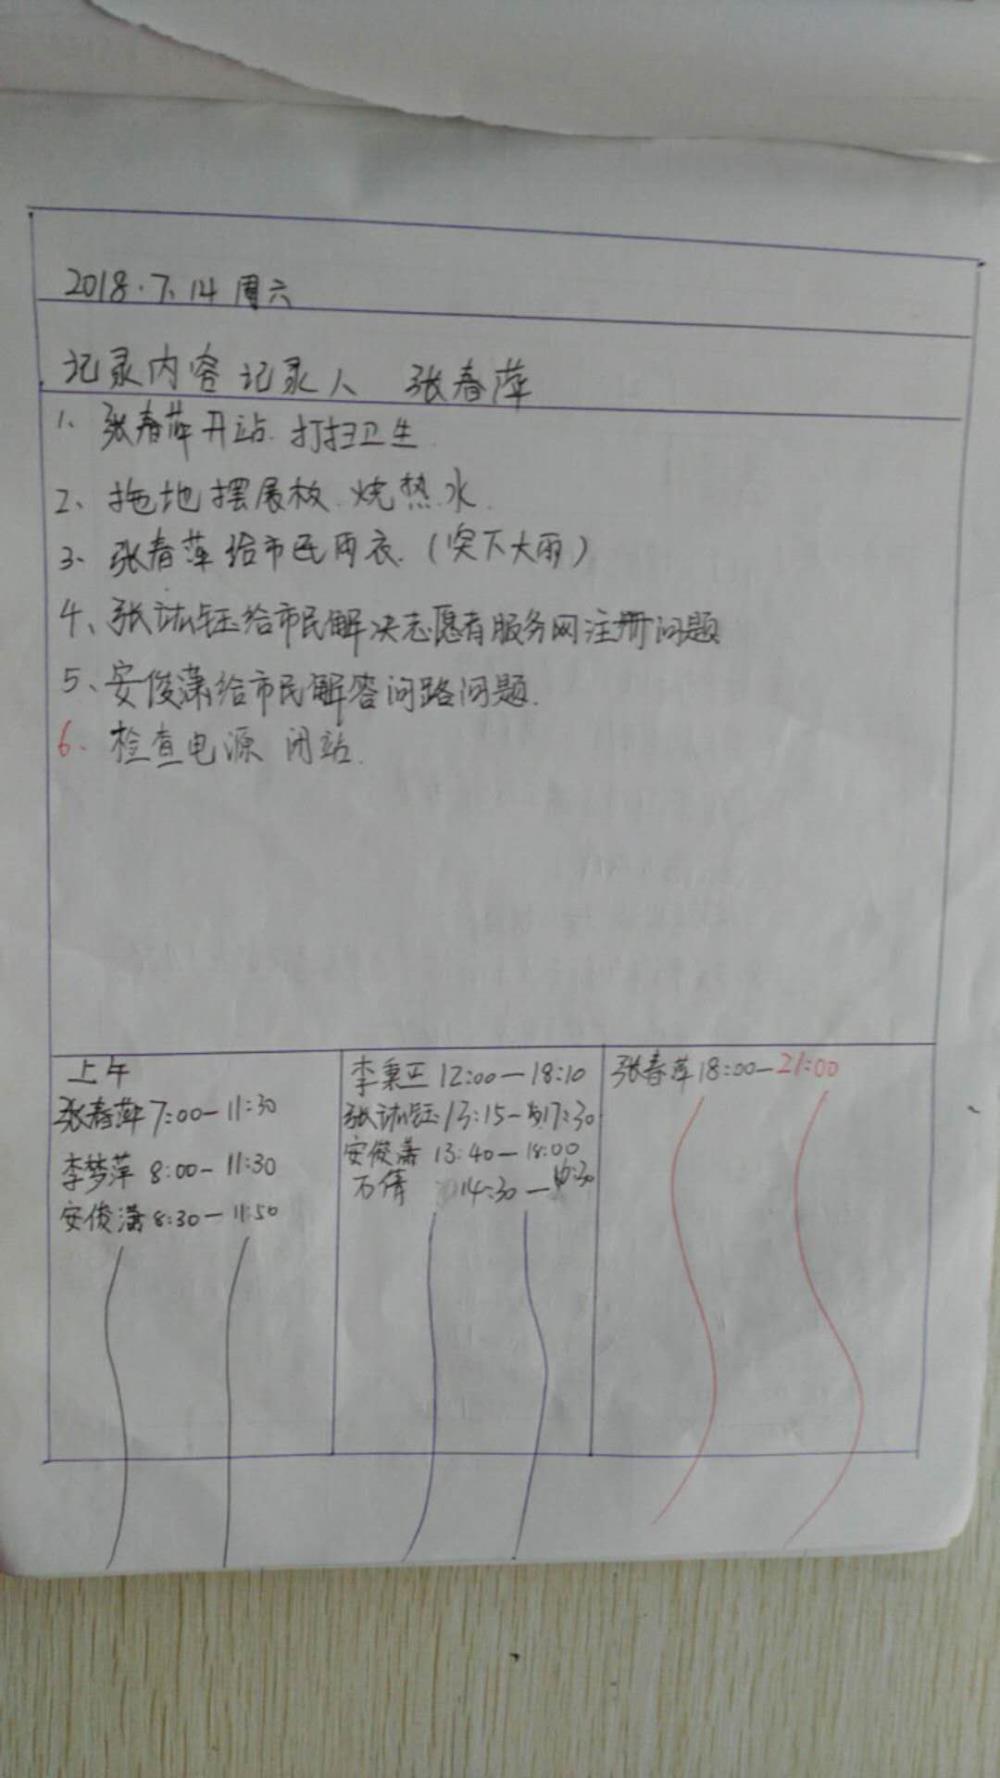 2018.7.14 周六
记录内容 记录人 张春萍
1、张春萍开站.打扫卫生.
2、拖地摆展板.烧热水.
3、张春萍给市民雨衣.(突下大雨)
4、张钰给市民解决志愿者服务网注册问题
5、安俊潇给市民解答问路问题.
6、检查电源 闭站.
上午
张春萍 7:00-11:30
李梦萍 8:00-11:30
安俊潇 8:30-11:50
李秉正 12:00-18:10
张钰 13:15-17:30
安俊潇 13:40-18:00
万倩 14:30-
张春萍 18:00-21:00